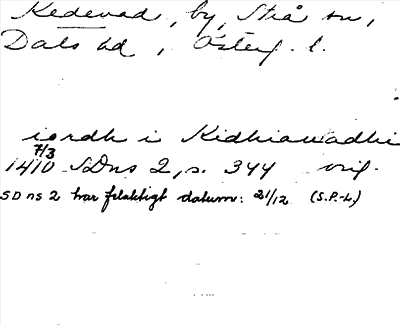 Kedevad, by, Strå sn,
Dals hd, Österg. l.
iordh i Kidhiawadhi
7/3
1410 SDns 2, s. 344 orig.
SD ns 2 har felaktigt datum: 21/12 (S.P.-L)